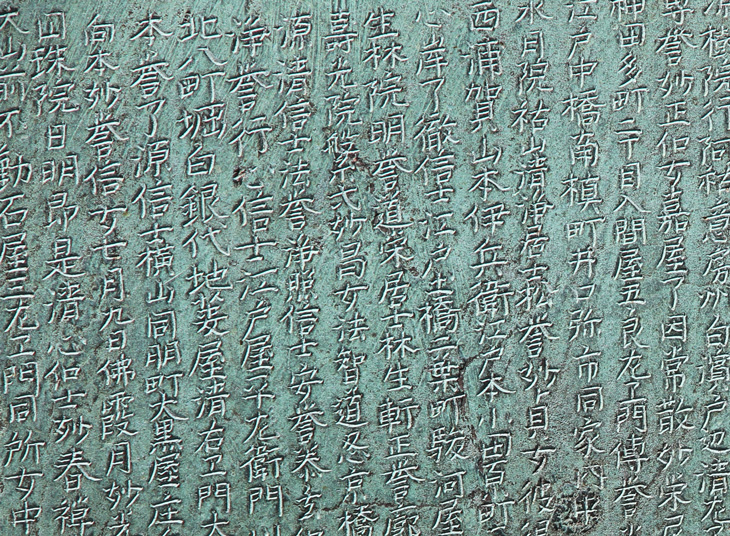 樹院行阿
尊誉妙正伯女嘉屋了因常散妙栄
神田多町二丁目入間屋五良左エ門傳誉
江戸中橋南槇町井口弥市同家内中
水月院祐山清浄居士松誉妙貞女
西浦賀山本伊兵衛江戸本小田百町
心岸了徹信士江戸生橋二葉町駿河屋
生林院明誉道栄居士林生軒正誉廓
寿光院 妙昌女法智道忍京橋
源清信士法誉浄照信士安誉
浄誉行心信士江戸屋平左衛門
北八町堀白銀代地菱屋清右エ門大
本誉了源信士横山同朋町大黒屋庄
向本妙誉信女七月九日佛霞月妙光
四珠院日明昴是清心伯士妙春禅
大山前不動石屋三左エ門同所女中